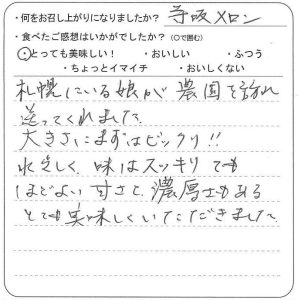 ・何をお召し上がりになりましたか？ 寺坂メロン
・食べたご感想はいかがでしたか？（○で囲む）
・とっても美味しい！ ・おいしい ・ふつう
・ちょっとイマイチ ・おいしくない
札幌にいる娘が農園を訪れ
送ってくれました
大きさにまずはビックリ!!
水々しく味はスッキリでも
ほどよい甘さで、濃厚さもある
とても美味しくいただきました。